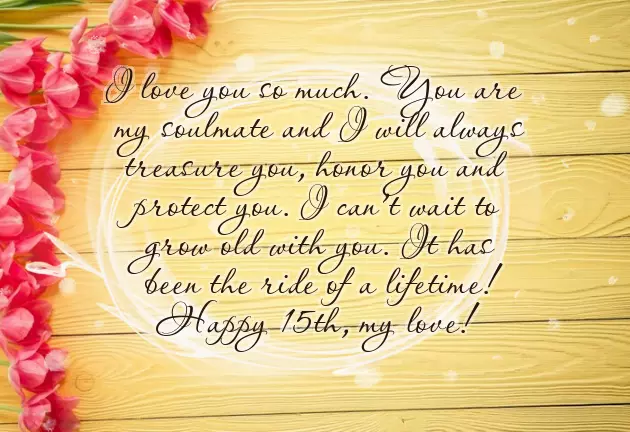 I love you so much. You are
my soulmate and I will always
treasure you, honor you and
protect you. I can't wait to
grow old with you. It has
been the ride of a lifetime!
Happy 15th, my love!